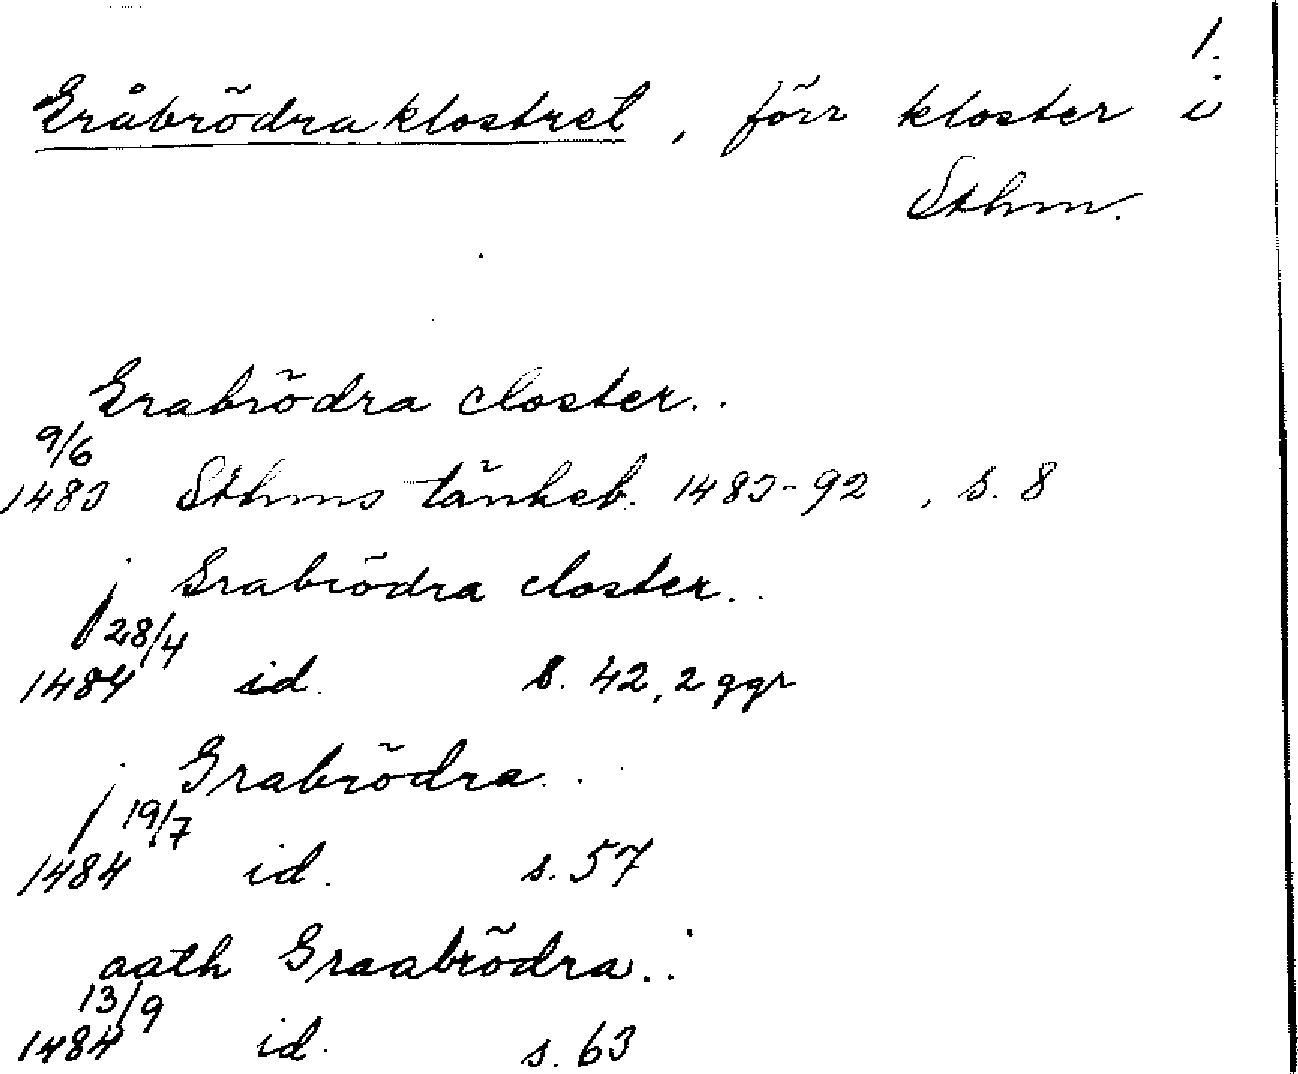 1.
Gråbrödraklostret, förr kloster i
Sthm.
Grabrödra closter..
9/6
1483 Sthms tänkeb. 1483-92, s. 8
j Grabrödra closter..
28/4
1484 id. s. 42, 2 ggr
j Grabrödra..
19/7
1484 id. s. 57
aath Graabrödra..
13/9
1484 id. s. 63